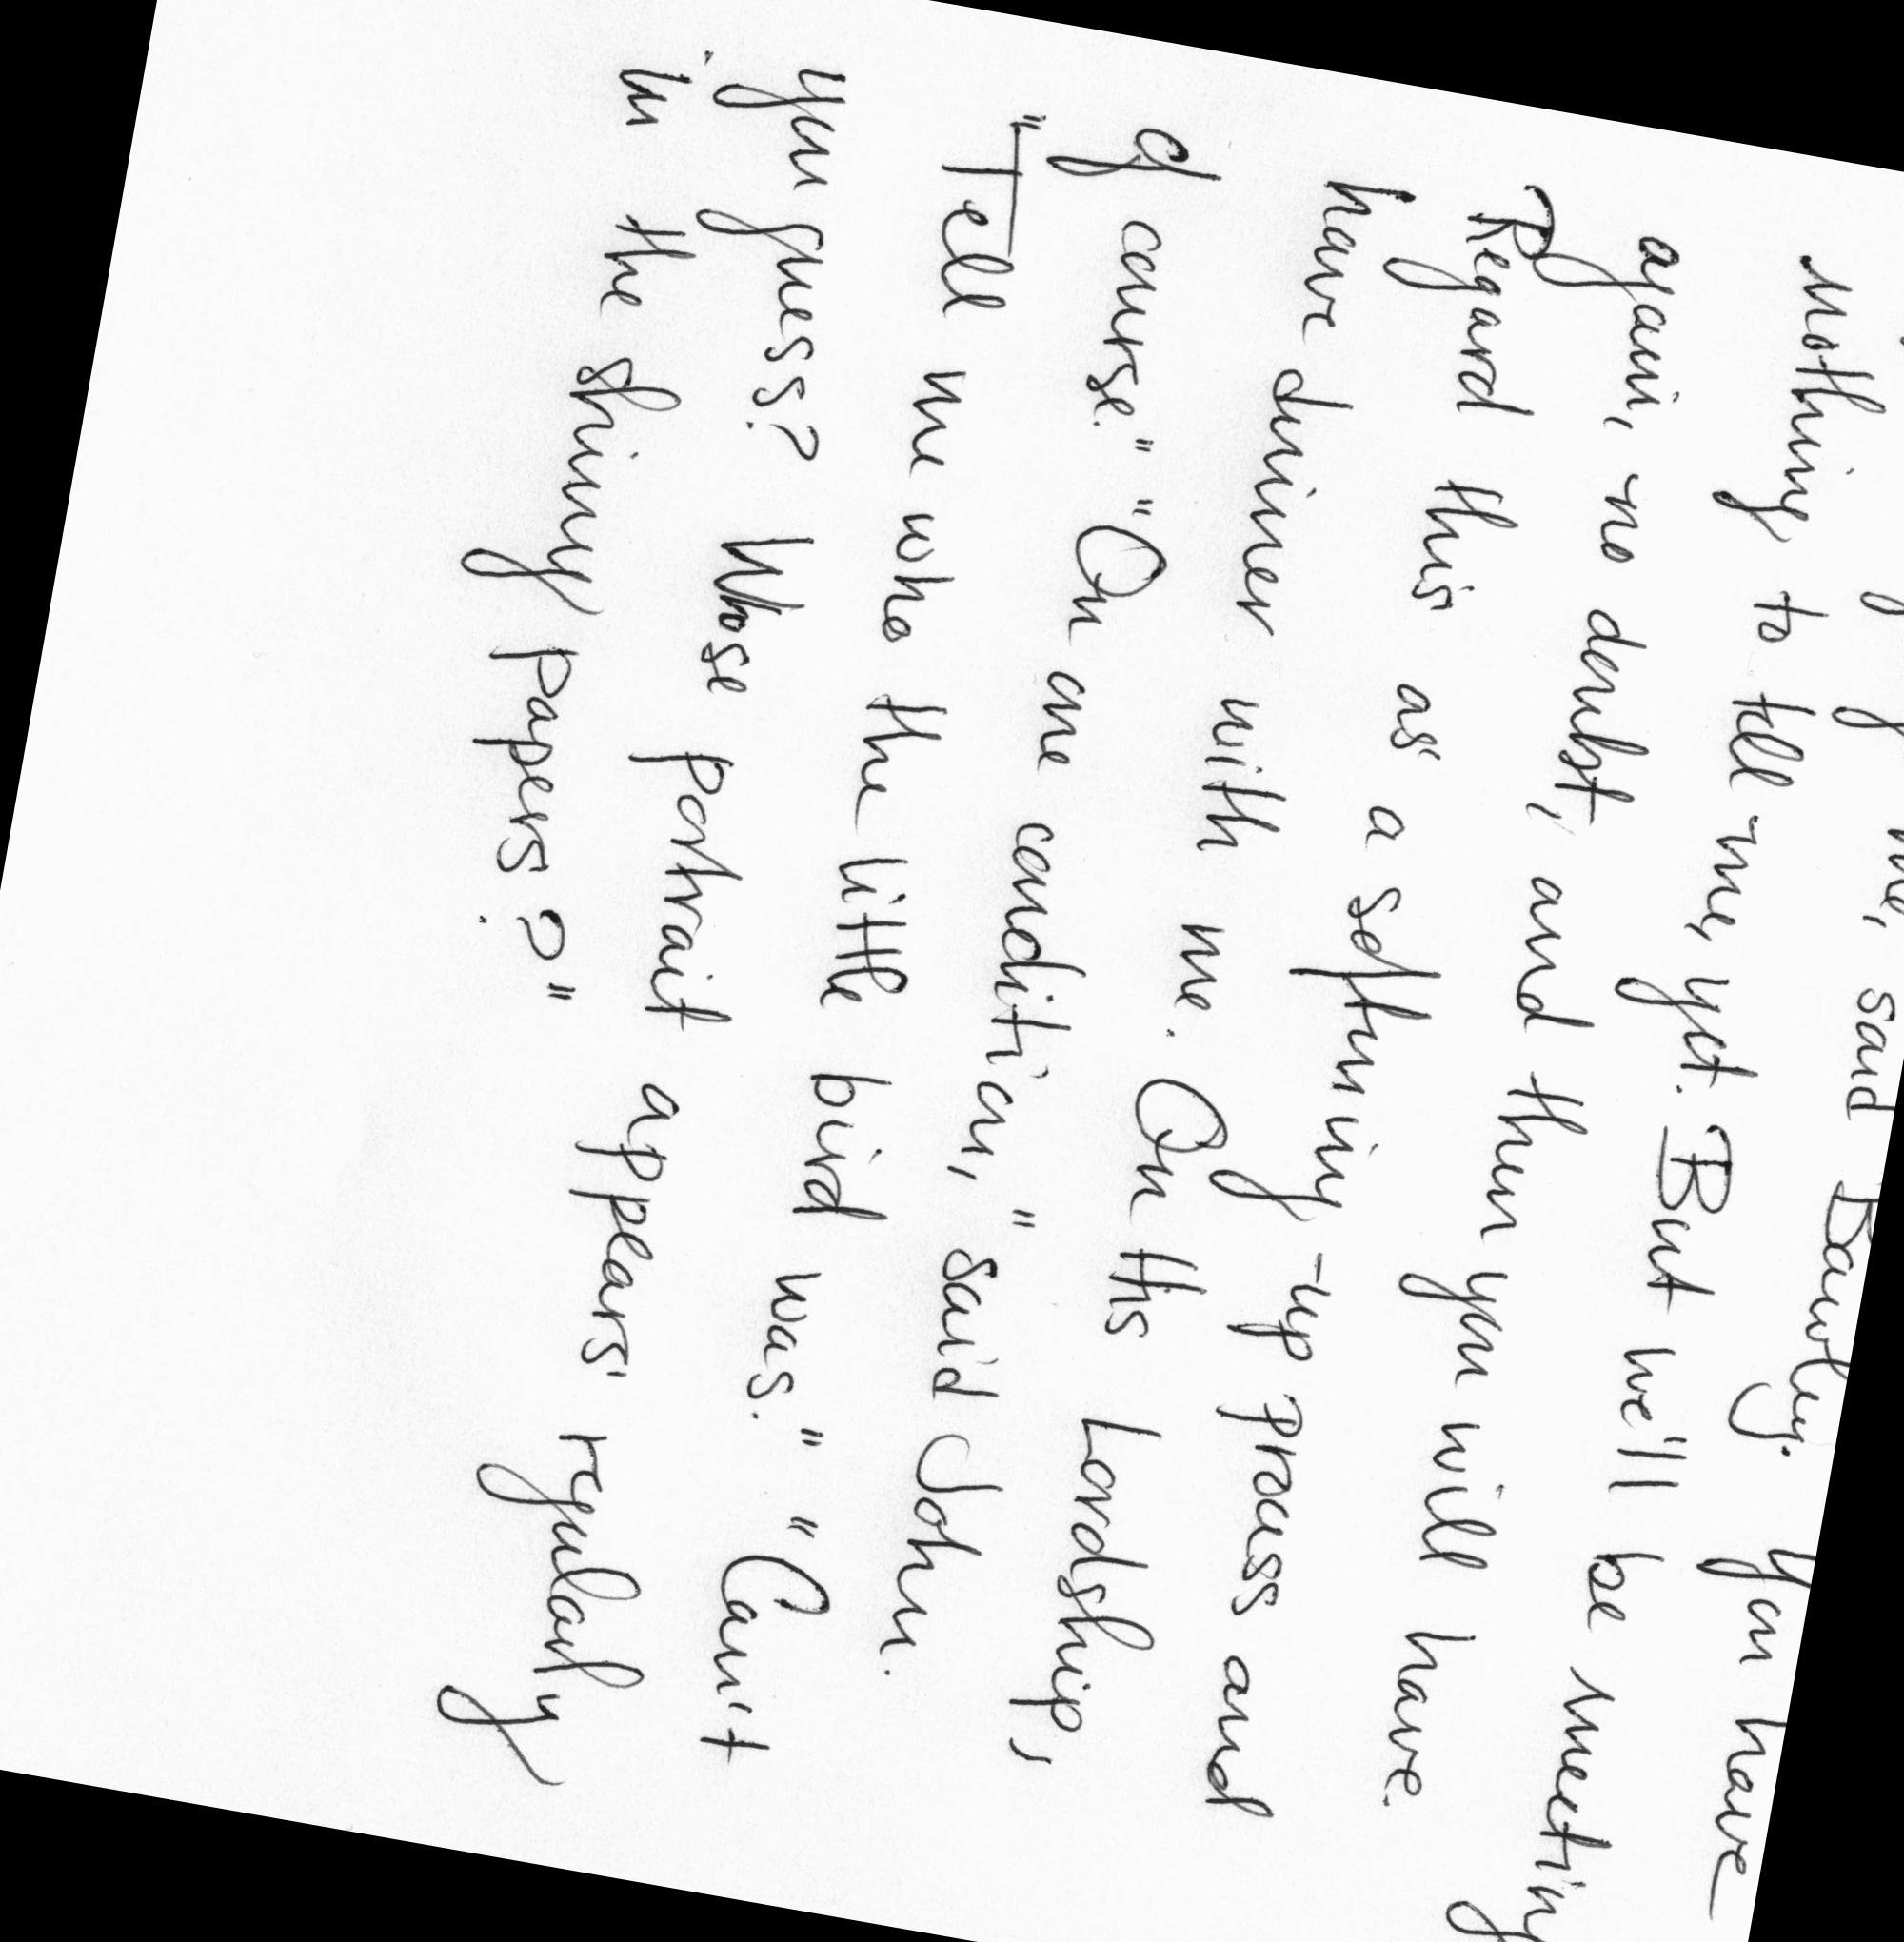 me, said Bawley. You have
nothing to tell me, yet. But we'll be meeting
again, no doubt, and then you will have.
Regard this as a softening-up process and
have dinner with me. On His Lordship,
of course." "On one condition," said John.
"Tell me who the little bird was." "Can't
you guess? Whose portrait appears regularly
in the shiny papers?"